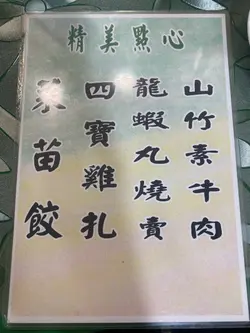 精美點心
山竹素牛肉
龍蝦丸燒賣
四寶雞扎
菜苗餃